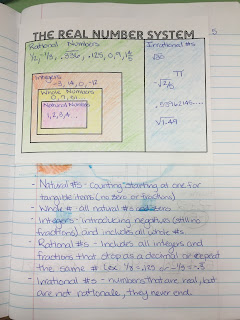 THE REAL NUMBER SYSTEM
5
Rational Numbers
Irrational #s
Integers
-3, 14, 0, -12
Whole Numbers
0, 9, 51
Natural Numbers
1,2,3,4...
π
- Natural #s - counting starting at one for
tangible items (no zero or fractions)
- Whole # - all natural #s and zero
- Integers - introducing negatives (still no
fractions) and includes all whole #s
- Rational #s - Includes all integers and
fractions that stop as a decimal or repeat
the same # (ex. 1/8 = .125 or -1/3 = -.3
- Irrational #s - numbers that are real, but
are not rationale, they never end.